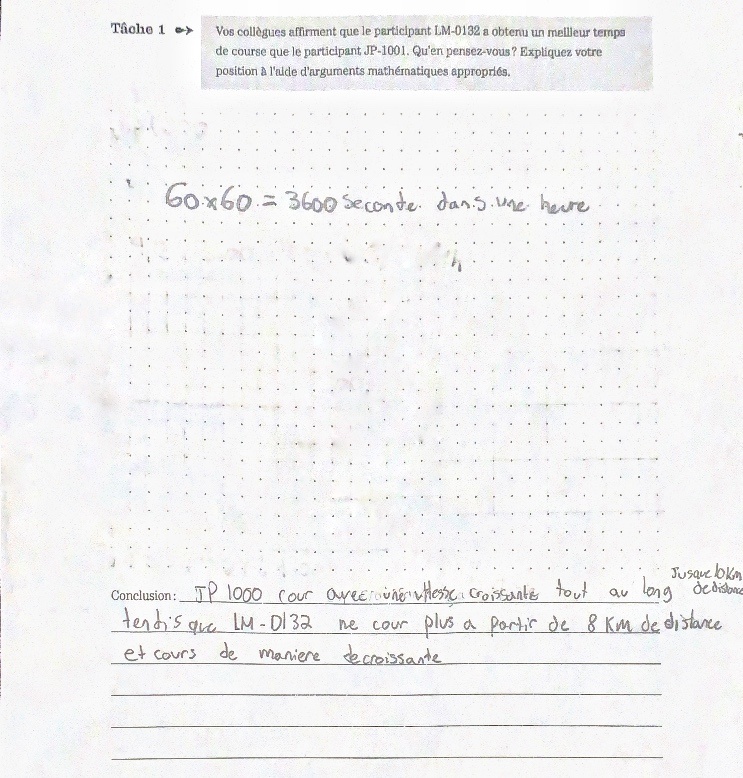 Tâche 1
Vos collègues affirment que le participant LM-0132 a obtenu un meilleur temps
de course que le participant JP-1001. Qu'en pensez-vous? Expliquez votre
position à l'aide d'arguments mathématiques appropriés.
60×60 = 3600 seconde dans une heure
Jusque 10 Km
de distance
Conclusion: JP 1000 cour avec une vitesse croissante tout au long
tendis que LM-0132 ne cour plus a partir de 8 Km de distance
et cours de maniere decroissante